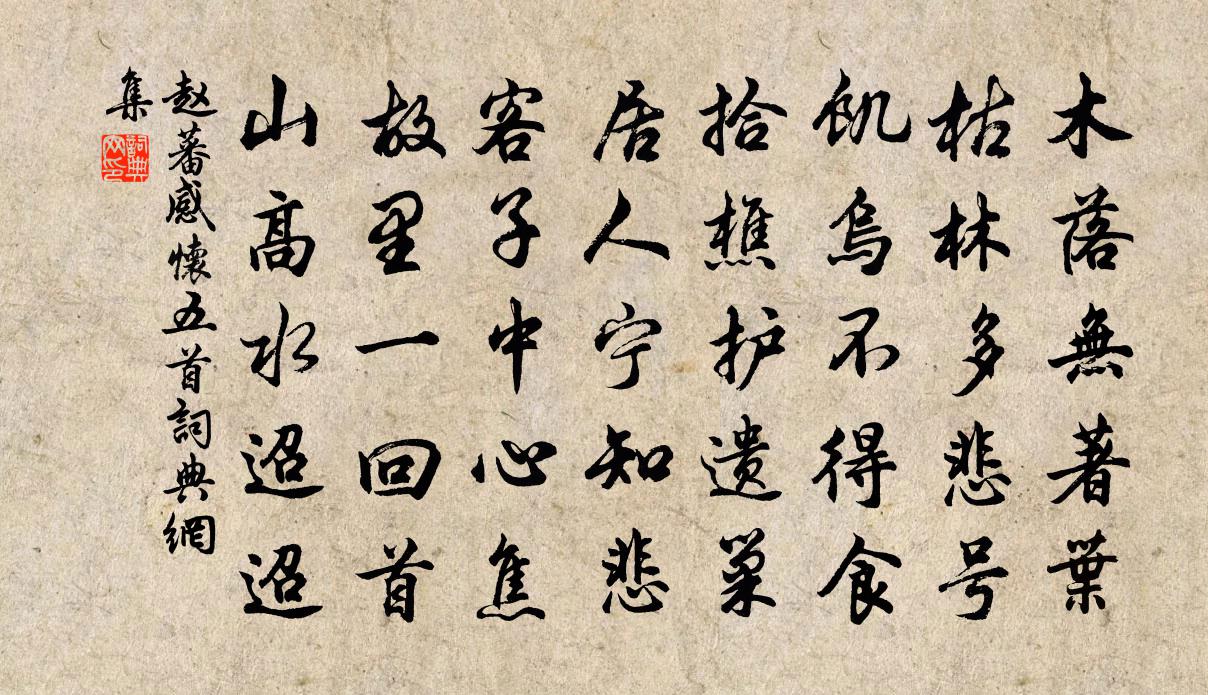 木落無著葉
枯林多悲号
飢烏不得食
拾樵护遗巢
居人宁知悲
客子中心焦
故里一回首
山高水迢迢
赵蕃感懷五首詞典網
集
詞典
网印